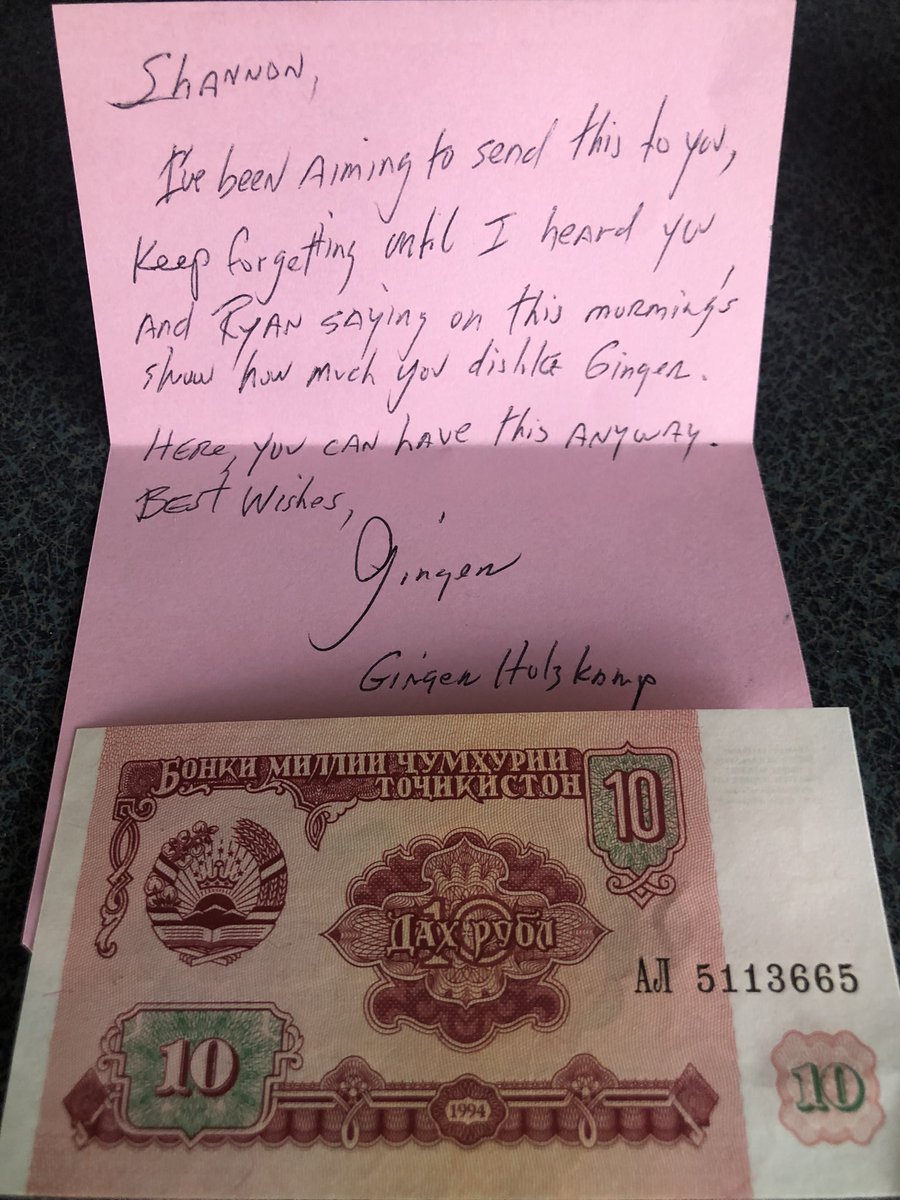 Shannon,
I've been aiming to send this to you,
keep forgetting until I heard you
and Ryan saying on this morning's
show how much you dislike Ginger.
Here, you can have this anyway.
Best Wishes,
Ginger
Ginger Holzkamp
БОНКИ МИЛЛИИ ҶУМҲУРИИ
ТОҶИКИСТОН
10
10
ДАҲ РУБЛ
АЛ 5113665
10
10
1994